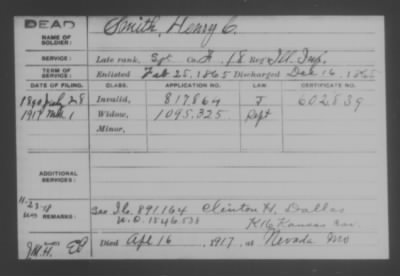 DEAD
Smith, Henry C.
NAME OF SOLDIER:
SERVICE: Late rank, Sgt Co. F, 18 Reg Ill. Inf.
TERM OF SERVICE: Enlisted Feb 25, 1865 Discharged Dec 16, 1865
DATE OF FILING. CLASS. APPLICATION NO. LAW CERTIFICATE NO.
1890 July 28 Invalid, 817.864 J 602839
1917 1 Widow, 1095.325
Minor,
ADDITIONAL SERVICES:
11-23-
REMARKS: See I.C. 891164 Clinton H. Dallas
W.O. 1546538 K 16 Kansas Cav.
J.M.H. Died Apl 16, 1917, at Nevada Mo